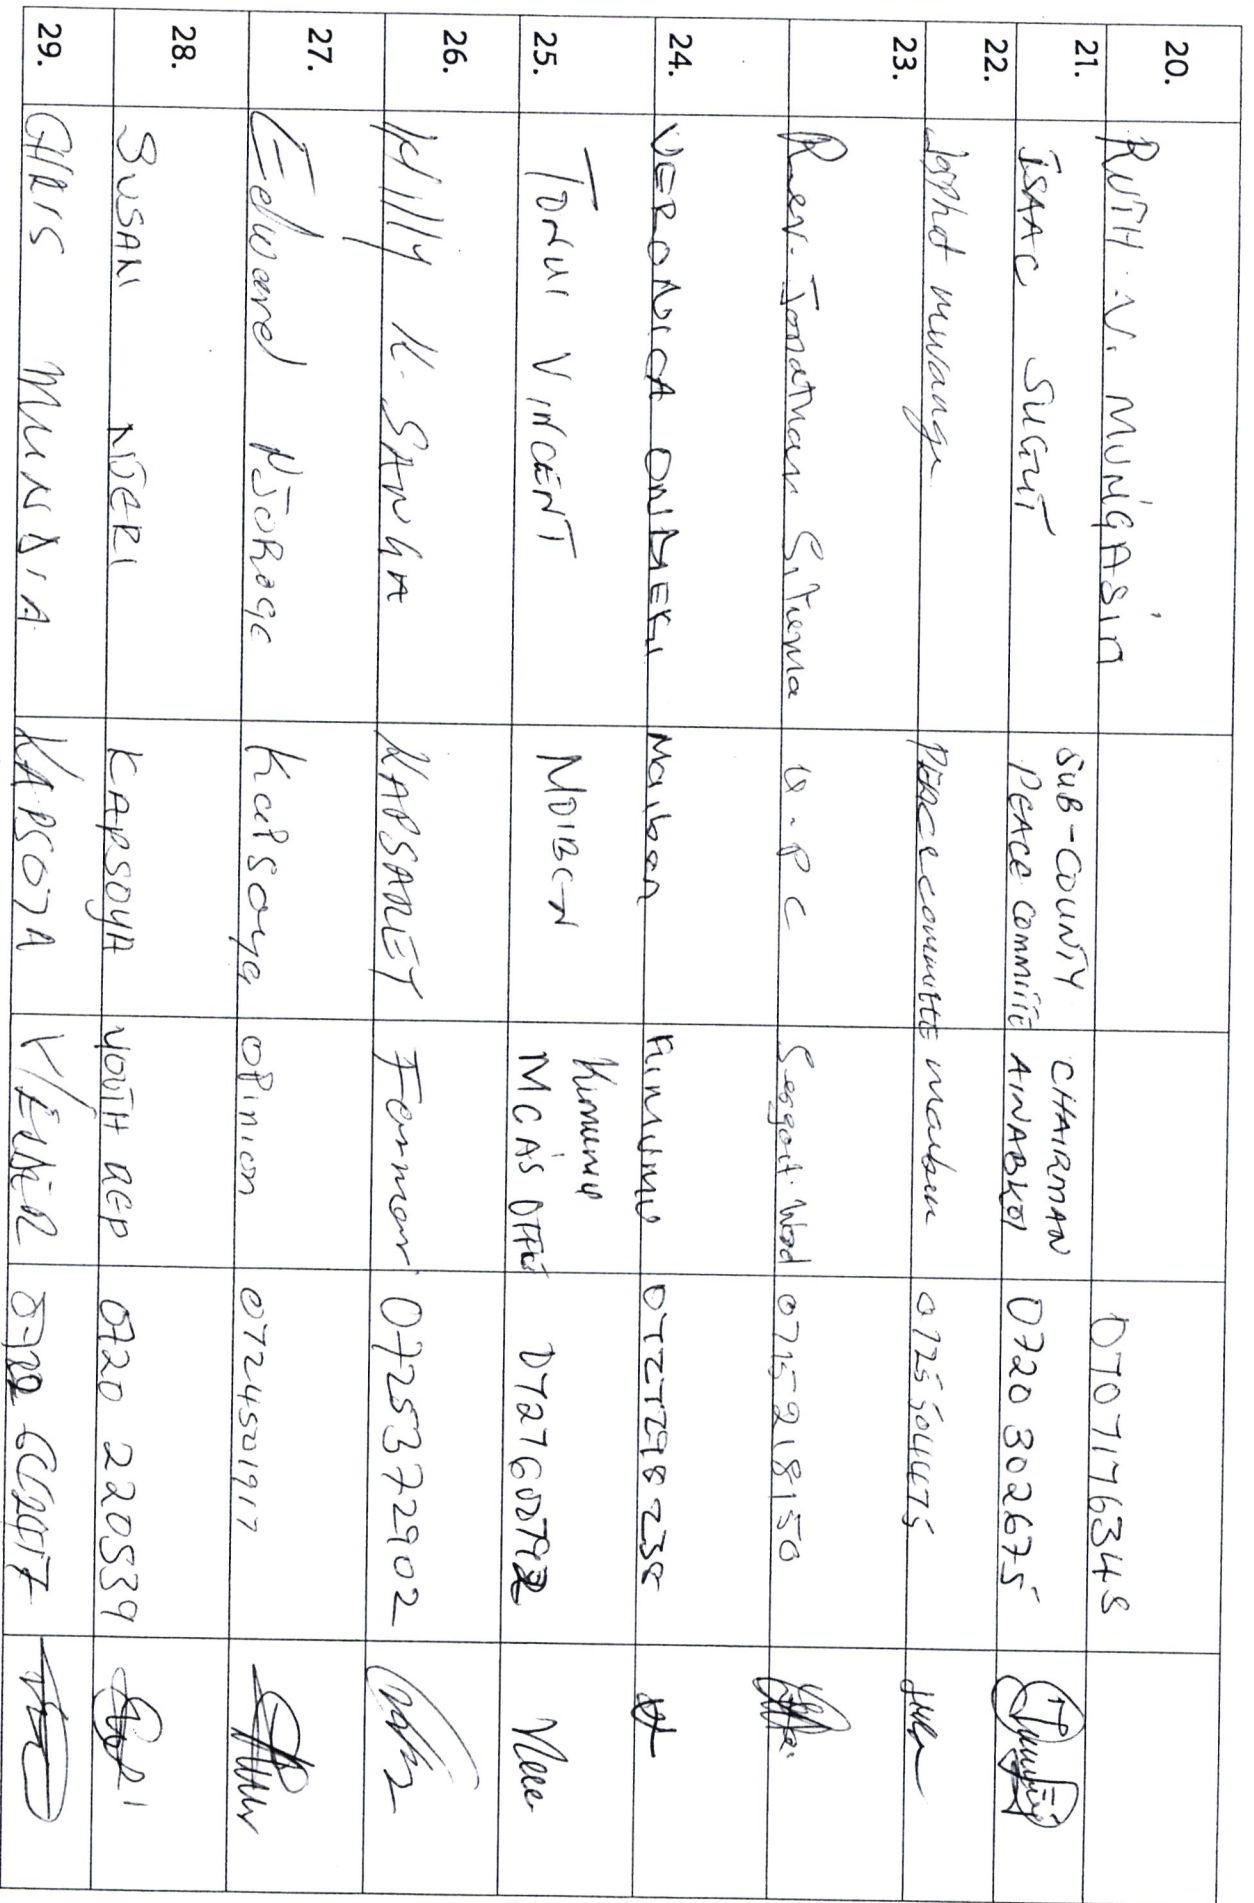 20. RUTH N. MUNGASIA 0707176348
21. ISAAC SUGUT SUB-COUNTY PEACE COMMITTE CHAIRMAN AINABKOI 0720 302675
22. Japhet mwangi PEACE committee 
23. Rev. Jonathan Sitiema U.P.C Ward 0715218150
24. VERONICA Moiben Kimumu
25. TONUI VINCENT MOIBEN Kimumu MCAS
26. Willy K. SANGA KAPSARET Farmer 0725372902
27. Edward NJOROGE Kapsoya opinion 0724501917
28. SUSAN NJERI KAPSOYA YOUTH REP 0720 220539
29. CHRIS MUNDIA KAPSOYA